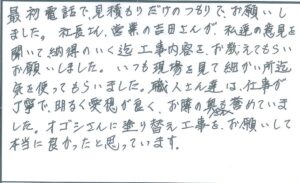 最初電話で、見積もりだけのつもりで、お願いし
ました。社長さん、営業の吉田さんが、私達の意見を
聞いて、納得のいく迄工事内容を、お教えてもらい
お願いしました。いつも現場を見て細かい所迄
気を使ってもらいました。職人さん達は、仕事が
丁寧で、明るく愛想が良く、お隣の奥様も誉めていま
した。オゴシさんに塗り替え工事を、お願いして
本当に良かったと思っています。